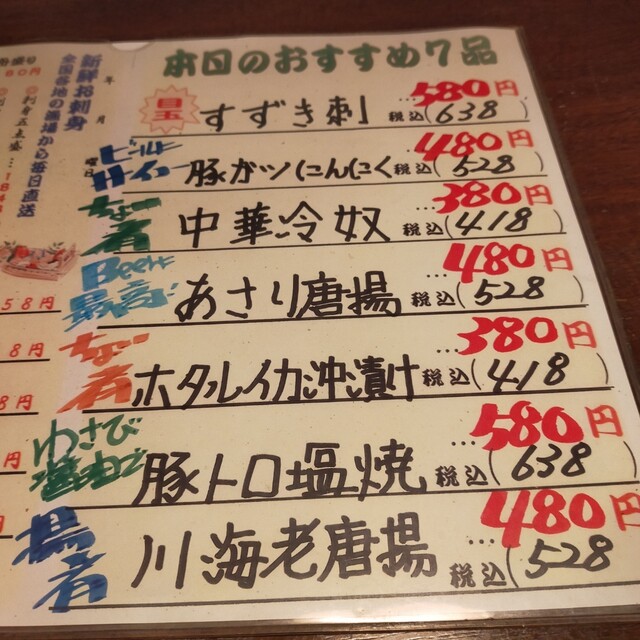 本日のおすすめ7品
目玉 すずき刺 …580円
税込(638)
ビールにハイボール 豚ガツにんにく 480円
税込(528)
ちょい肴 中華冷奴 …380円
税込(418)
Beerに最高! あさり唐揚 …480円
税込(528)
ちょい肴 ホタルイカ沖漬け …380円
税込(418)
わさび醤油で 豚トロ塩焼 …580円
税込(638)
揚肴 川海老唐揚 …480円
税込(528)
年 月 曜日
新鮮お刺身
全国各地の漁場から毎日直送
58円
8円
8円
円